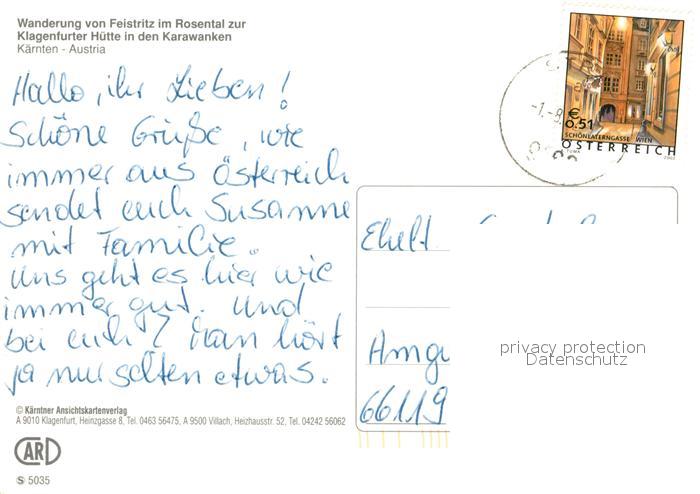 Wanderung von Feistritz im Rosental zur
Klagenfurter Hütte in den Karawanken
Kärnten - Austria
Hallo, ihr Lieben!
Schöne Grüße, wie
immer aus Österreich
sendet euch Susanne
mit Familie.
Uns geht es hier wie
immer gut. Und
bei euch? Man hört
ja nur selten etwas.
© Kärntner Ansichtskartenverlag
A 9010 Klagenfurt, Heinzgasse 8, Tel. 0463 56475, A 9500 Villach, Heizhausstr. 52, Tel. 04242 56062
CARD
S 5035
€
0.51
SCHÖNLATERNGASSE WIEN
ÖSTERREICH
TUMA 2002
-1.-8.
66119
privacy protection
Datenschutz